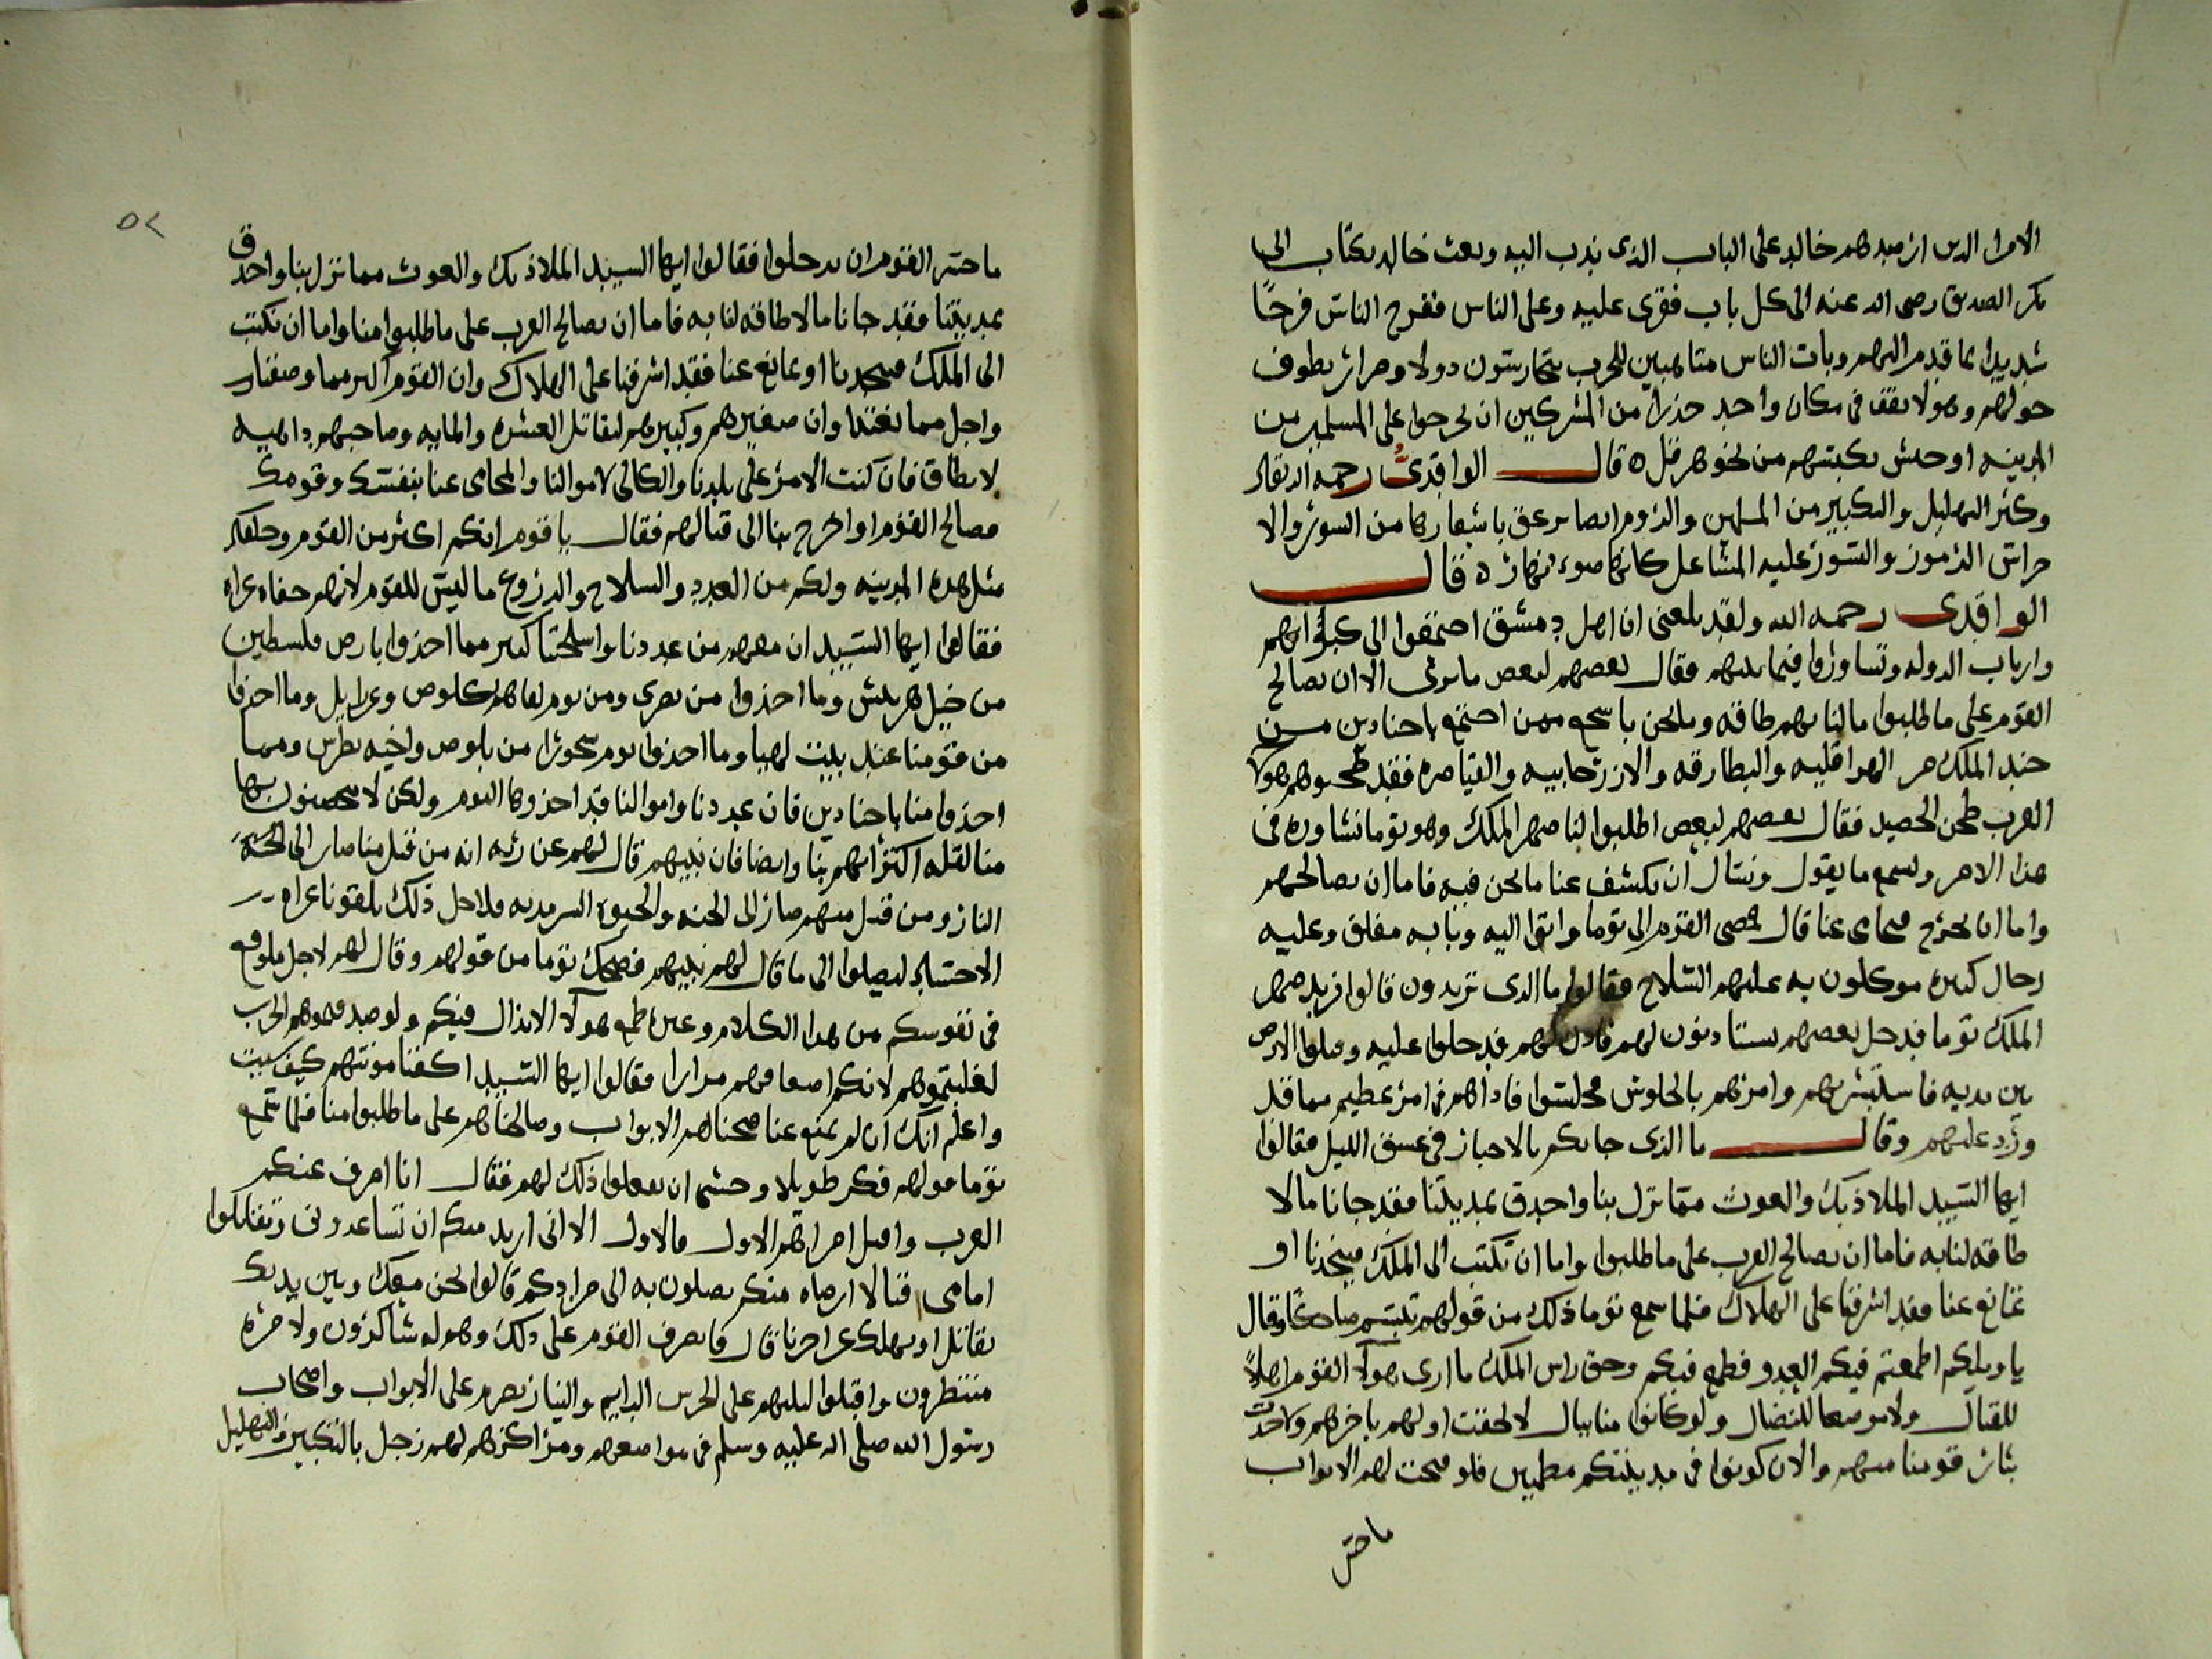 الامرا الدين ارصدهم خالد على الباب الذى ندب اليه وبعث خالد بكتاب ابى
بكر الصديق رضى الله عنه الى كل باب فقرى عليه وعلى الناس ففرح الناس فرحًا
شديدا بما قدم اليهم وبات الناس متاهبين للحرب يتحارسون دولا وضرار يطوف
حولهم وهو لا يقف فى مكان واحد حذرا من المشركين ان يخرجوا على المسلمين من
المدينه او جيش يكبسهم من نحو هرقل ٥ قال الواقدىُّ رحمه الله تعالى
وكثر التهليل والتكبير من المسلمين والروم ايضا يزعق باشعارها من السور والا
جراس الرموز والسور عليه المشاعل كانها ضوء نهار ٥ قال
الواقدى رحمه الله ولقد بلغنى ان اهل دمشق اجتمعوا الى كبرائهم
وارباب الدوله وتشاوروا فيما بينهم فقال بعضهم لبعض ما نرى الا ان نصالح
القوم على ما طلبوا ما لنا بهم طاقه وما نحن باشجع ممن اجتمع باجنادين من
جند الملك من الهراقليه والبطارقه والازرتحابيه والقياصره فقد طحنوهم هولا
العرب طحن الحصيد فقال بعضهم لبعض اطلبوا لنا صهر الملك وهو توما نشاوره فى
هذا الامر ونسمع ما يقول ونسال ان يكشف عنا ما نحن فيه فاما ان يصالحهم
واما ان يخرج فيحامى عنا قال فمضى القوم الى توما واتوا اليه وبابه مغلق وعليه
رجال كثيره موكلون به عليهم السلاح فقالوا ما الدى تريدون قالوا نريد صهر
الملك توما فدخل بعضهم يستاذنون لهم فاذن لهم فدخلوا عليه وقبلوا الارض
بين يديه فاستبشر بهم وامرهم بالجلوس فجلسوا فاذا هم فى امر عظيم مما قد
ورد عليهم وقال ما الذى جابكم بالاحبار فى غسق الليل فقالوا
ايها السيد الملاذ بك والغوث مما نزل بنا واحدق بمدينتنا فقد جانا ما لا
طاقه لنا به فاما ان تصالح العرب على ما طلبوا واما ان تكتب الى الملك فينجدنا او
تمانع عنا فقد اشرفنا على الهلاك فلما سمع توما ذلك من قولهم تبسم ضاحكًا وقال
يا ويلكم اطمعتم فيكم العدو فطمع فيكم وحق راس الملك ما ارى هولا القوم اهلاً
للقتال ولا موضعا للنضال ولو كانوا منا ببال لالحقت اولهم باخرهم واخذت
بثار قومنا منهم والان كونوا فى مدينتكم مطمين فلو فتحت لهم الابواب
ما جسر
٥٢
ما جسر القوم ان يدخلوا فقالوا ايها السيد الملاذ بك والغوث مما نزل بنا واحدق
بمدينتنا فقد جانا ما لا طاقه لنا به فاما ان تصالح العرب على ما طلبوا منا واما ان تكتب
الى الملك فينجدنا او تمانع عنا فقد اشرفنا على الهلاك وان القوم اكبر مما وصفنا
واجل مما نعتنا وان صغيرهم وكبيرهم ليقاتل العشره والمايه وصاحبهم داهيه
لا يطاق فان كنت الامر على بلدنا والكالى لاموالنا والمحامى عنا بنفسك وقومك
فصالح القوم او اخرج بنا الى قتالهم فقال يا قوم انكم اكثر من القوم وخلفكم
مثل هذه المدينه ولكم من العدد والسلاح والدروع ما ليس للقوم لانهم حفاه عراه
فقالوا ايها السيد ان معهم من عددنا واسلحتنا كثير مما اخذوا بارض فلسطين
من خيل هربيش وما اخذوا من بصرى ومن يوم لقاهم كلوص وعزازيل وما اخذوا
من قومنا عند بيت لهيا وما اخذوا يوم شحورا من بلوص واخيه بطرس ومما
اخذوا منا باجنادين فان عددنا واموالنا قد اخذوها اليوم ولكن لا يتحصنون بها
منا لقله اكتراثهم بنا وايضا فان نبيهم قال لهم عن ربه انه من قتل منا صار الى الجنة
النار ومن قتل منهم صار الى الجنه والحيوه السرمديه فلاجل ذلك يلقونا عراه
الاجساد ليصلوا الى ما قال لهم نبيهم فضحك توما من قولهم وقال لهم لاجل ما وقع
فى نفوسكم من هذا الكلام وغيره طمع هولا الانذال فيكم ولو صدقتموهم الحرب
لغلبتموهم لانكم اضعافهم مرارا فقالوا ايها السيد اكفنا مونتهم كيف شيت
واعلم انك ان لم تمنع عنا فتحنا لهم الابواب وصالحناهم على ما طلبوا منا فلما سمع
توما قولهم فكر طويلا وخشى ان يفعلوا ذلك لهم فقال انا اصرف عنكم
العرب واقتل امراتهم الاول فالاول الا انى اريد منكم ان تساعدونى وتقاتلوا
امامى قتالا ارضاه منكم تصلون به الى مرادكم قالوا نحن معك وبين يديك
نقاتل او نهلك عن اخرنا قال فانصرف القوم على ذلك وهو له شاكرون ولامره
منتظرون واقبلوا ليلتهم على الحرس الدايم والنيار تضرم على الابواب واصحاب
رسول الله صلى الله عليه وسلم فى مواضعهم ومراكزهم لهم زجل بالتكبير والتهليل